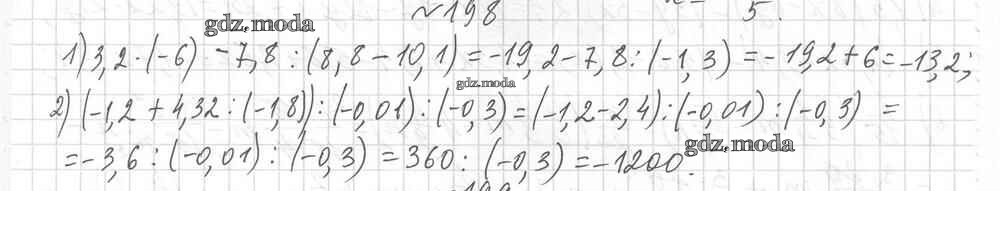 №198
5.
gdz.moda
1) 3,2 · (-6) - 7,8 : (8,8 - 10,1) = -19,2 - 7,8 : (-1,3) = -19,2 + 6 = -13,2;
gdz.moda
2) (-1,2 + 4,32 : (-1,8)) : (-0,01) : (-0,3) = (-1,2 - 2,4) : (-0,01) : (-0,3) =
= -3,6 : (-0,01) : (-0,3) = 360 : (-0,3) = -1200.
gdz.moda